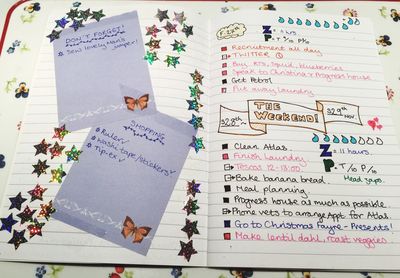 DON'T FORGET!
Sew lovely Mans
jumper!
SHOPPING
Ruler
Washi tape/stickers
Tipex
F.27th
Z = 8 hours
Recruitment all day
TWITTER
Buy Kr's, squid, blueberries
Speak to Christina + Progress house
Get Petrol
Put away laundry
S28th
THE
WEEKEND!
S29th
Nov.
Z = 11 hours
P = 9/10 P/10
Clean Atlas.
Finish laundry
Tescos 12-13:00!
Bake banana bread.
Head zaps
Meal planning.
Progress house as much as possible
Phone vets to arrange Appt for Atlas
Go to Christmas Fayre - Presents!
Make lentil dahl, roast veggies